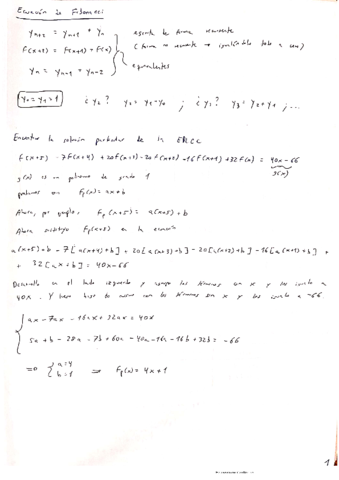 Ecuación de Fibonacci
y_{n+2} = y_{n+1} + y_n
f(x+2) = f(x+1) + f(x)
y_n = y_{n-1} + y_{n-2}
equivalentes
y_0 = y_1 = 1
¿ y_2 ? y_2 = y_1 + y_0 ; ¿ y_3 ? y_3 = y_2 + y_1 ; ...
Encontrar la solución particular de la
f(x+5) - 7f(x+4) + 20f(x+3) - 20f(x+2) - 16f(x+1) + 32f(x) = 40x - 66
g(x)
g(x) es un polinomio de grado 1
f_p(x) = ax + b
Ahora, por ejemplo, f_p(x+5) = a(x+5) + b
Ahora sustituyo f_p(x+5) en la ecuación
a(x+5)+b - 7[a(x+4)+b] + 20[a(x+3)+b] - 20[a(x+2)+b] - 16[a(x+1)+b] +
+ 32[ax+b] = 40x - 66
Desarrollo en el lado izquierdo y los términos con x y los igualo a
40x. Y luego hago lo mismo con los términos sin x y los igualo a -66
ax - 7ax - 16ax + 32ax = 40x
5a + b - 28a - 7b + 60a - 40a - 16a - 16b + 32b = -66
=> { a=4
b=1 => f_p(x) = 4x + 1
1